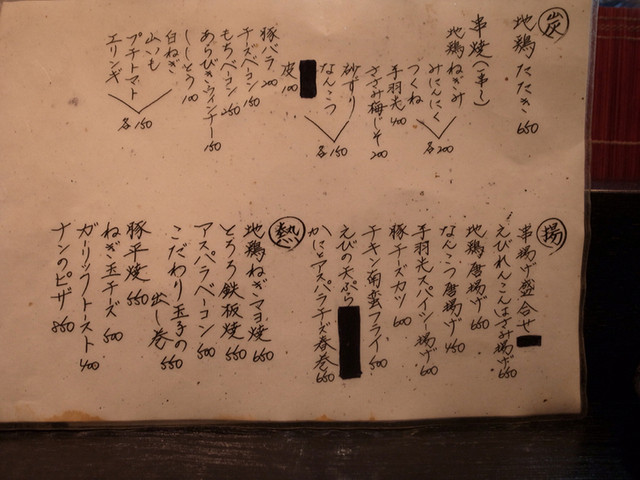 炭
地鶏たたき 650
串焼(一串)
地鶏ねぎみ
みにんにく
つくね
各200
手羽先 400
ささみ梅じそ 200
砂ずり
なんこつ
各150
皮 100
豚バラ 200
チーズベーコン 150
もちベーコン 250
あらびきウィンナー 150
ししとう 100
白ねぎ
山いも
プチトマト
エリンギ
各150
揚
串揚げ盛合せ
えびれんこんはさみ揚げ 650
地鶏唐揚げ 650
なんこつ唐揚げ 450
手羽先スパイシー揚げ 600
豚チーズカツ 600
チキン南蛮フライ 500
えびの天ぷら
かにとアスパラチーズ春巻 650
熱
地鶏ねぎマヨ焼 650
とろろ鉄板焼 550
アスパラベーコン 500
こだわり玉子の
出し巻 550
豚平焼 550
ねぎ玉チーズ 500
ガーリックトースト 400
ナンのピザ 850